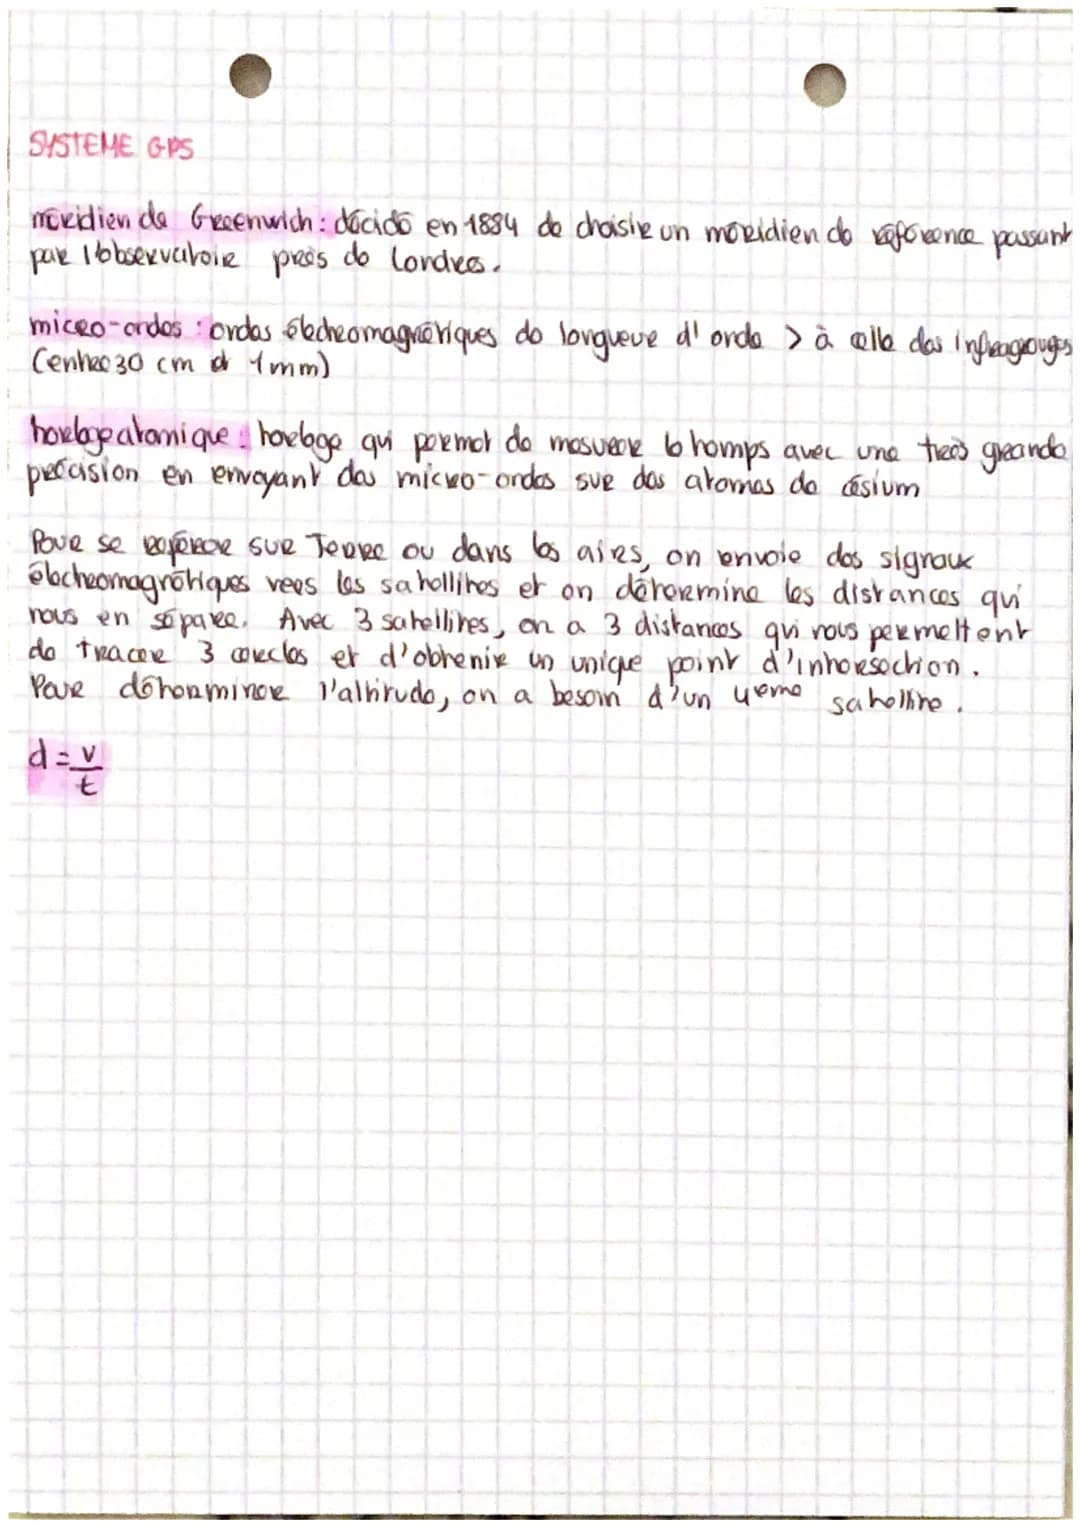 SYSTEME GPS
méridien de Greenwich : décidé en 1884 de choisir un méridien de référence passant
par l'observatoire près de Londres.
micro-ondes : ondes électromagnétiques de longueur d'onde > à celle des infrarouges
(entre 30 cm et 1mm)
horloge atomique : horloge qui permet de mesurer le temps avec une très grande
précision en envoyant des micro-ondes sur des atomes de césium
Pour se repérer sur Terre ou dans les aires, on envoie des signaux
électromagnétiques vers les satellites et on détermine les distances qui
nous en sépare. Avec 3 satellites, on a 3 distances qui nous permettent
de tracer 3 cercles et d'obtenir un unique point d'intersection.
Pour déterminer l'altitude, on a besoin d'un 4eme satellite.
d = v
t